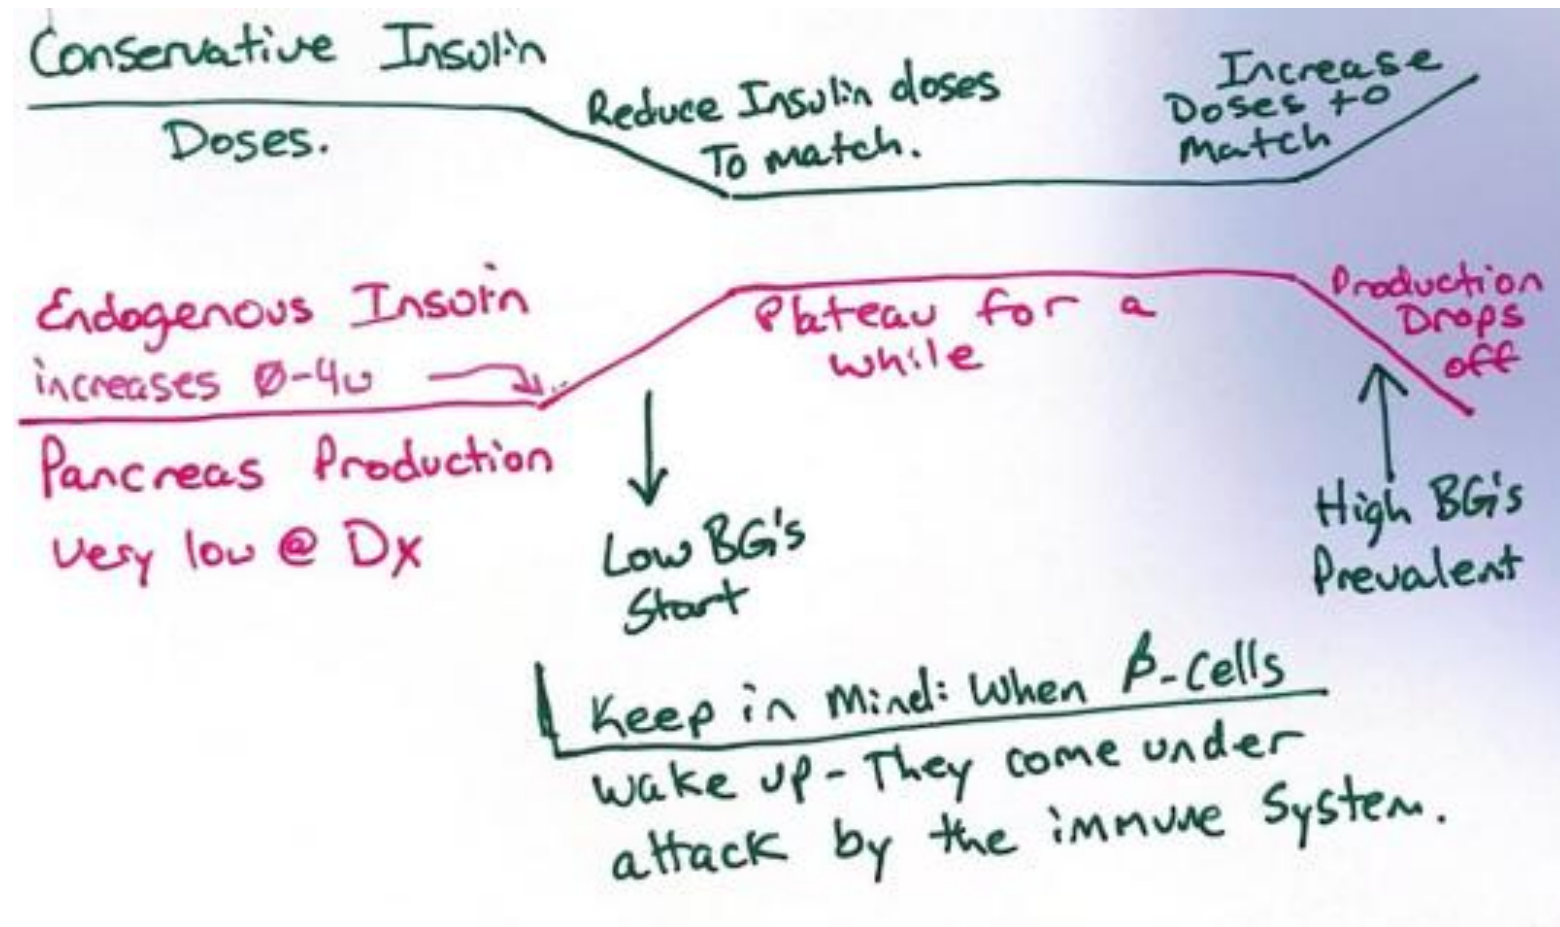 Conservative Insulin
Doses.
Reduce Insulin doses
To match.
Increase
Doses to
Match
Endogenous Insulin
increases Ø-4u
Pancreas Production
very low @ Dx
Plateau for a
while
Production
Drops
off
Low BG's
Start
High BG's
Prevalent
Keep in Mind: When β-Cells
wake up - They come under
attack by the immune System.